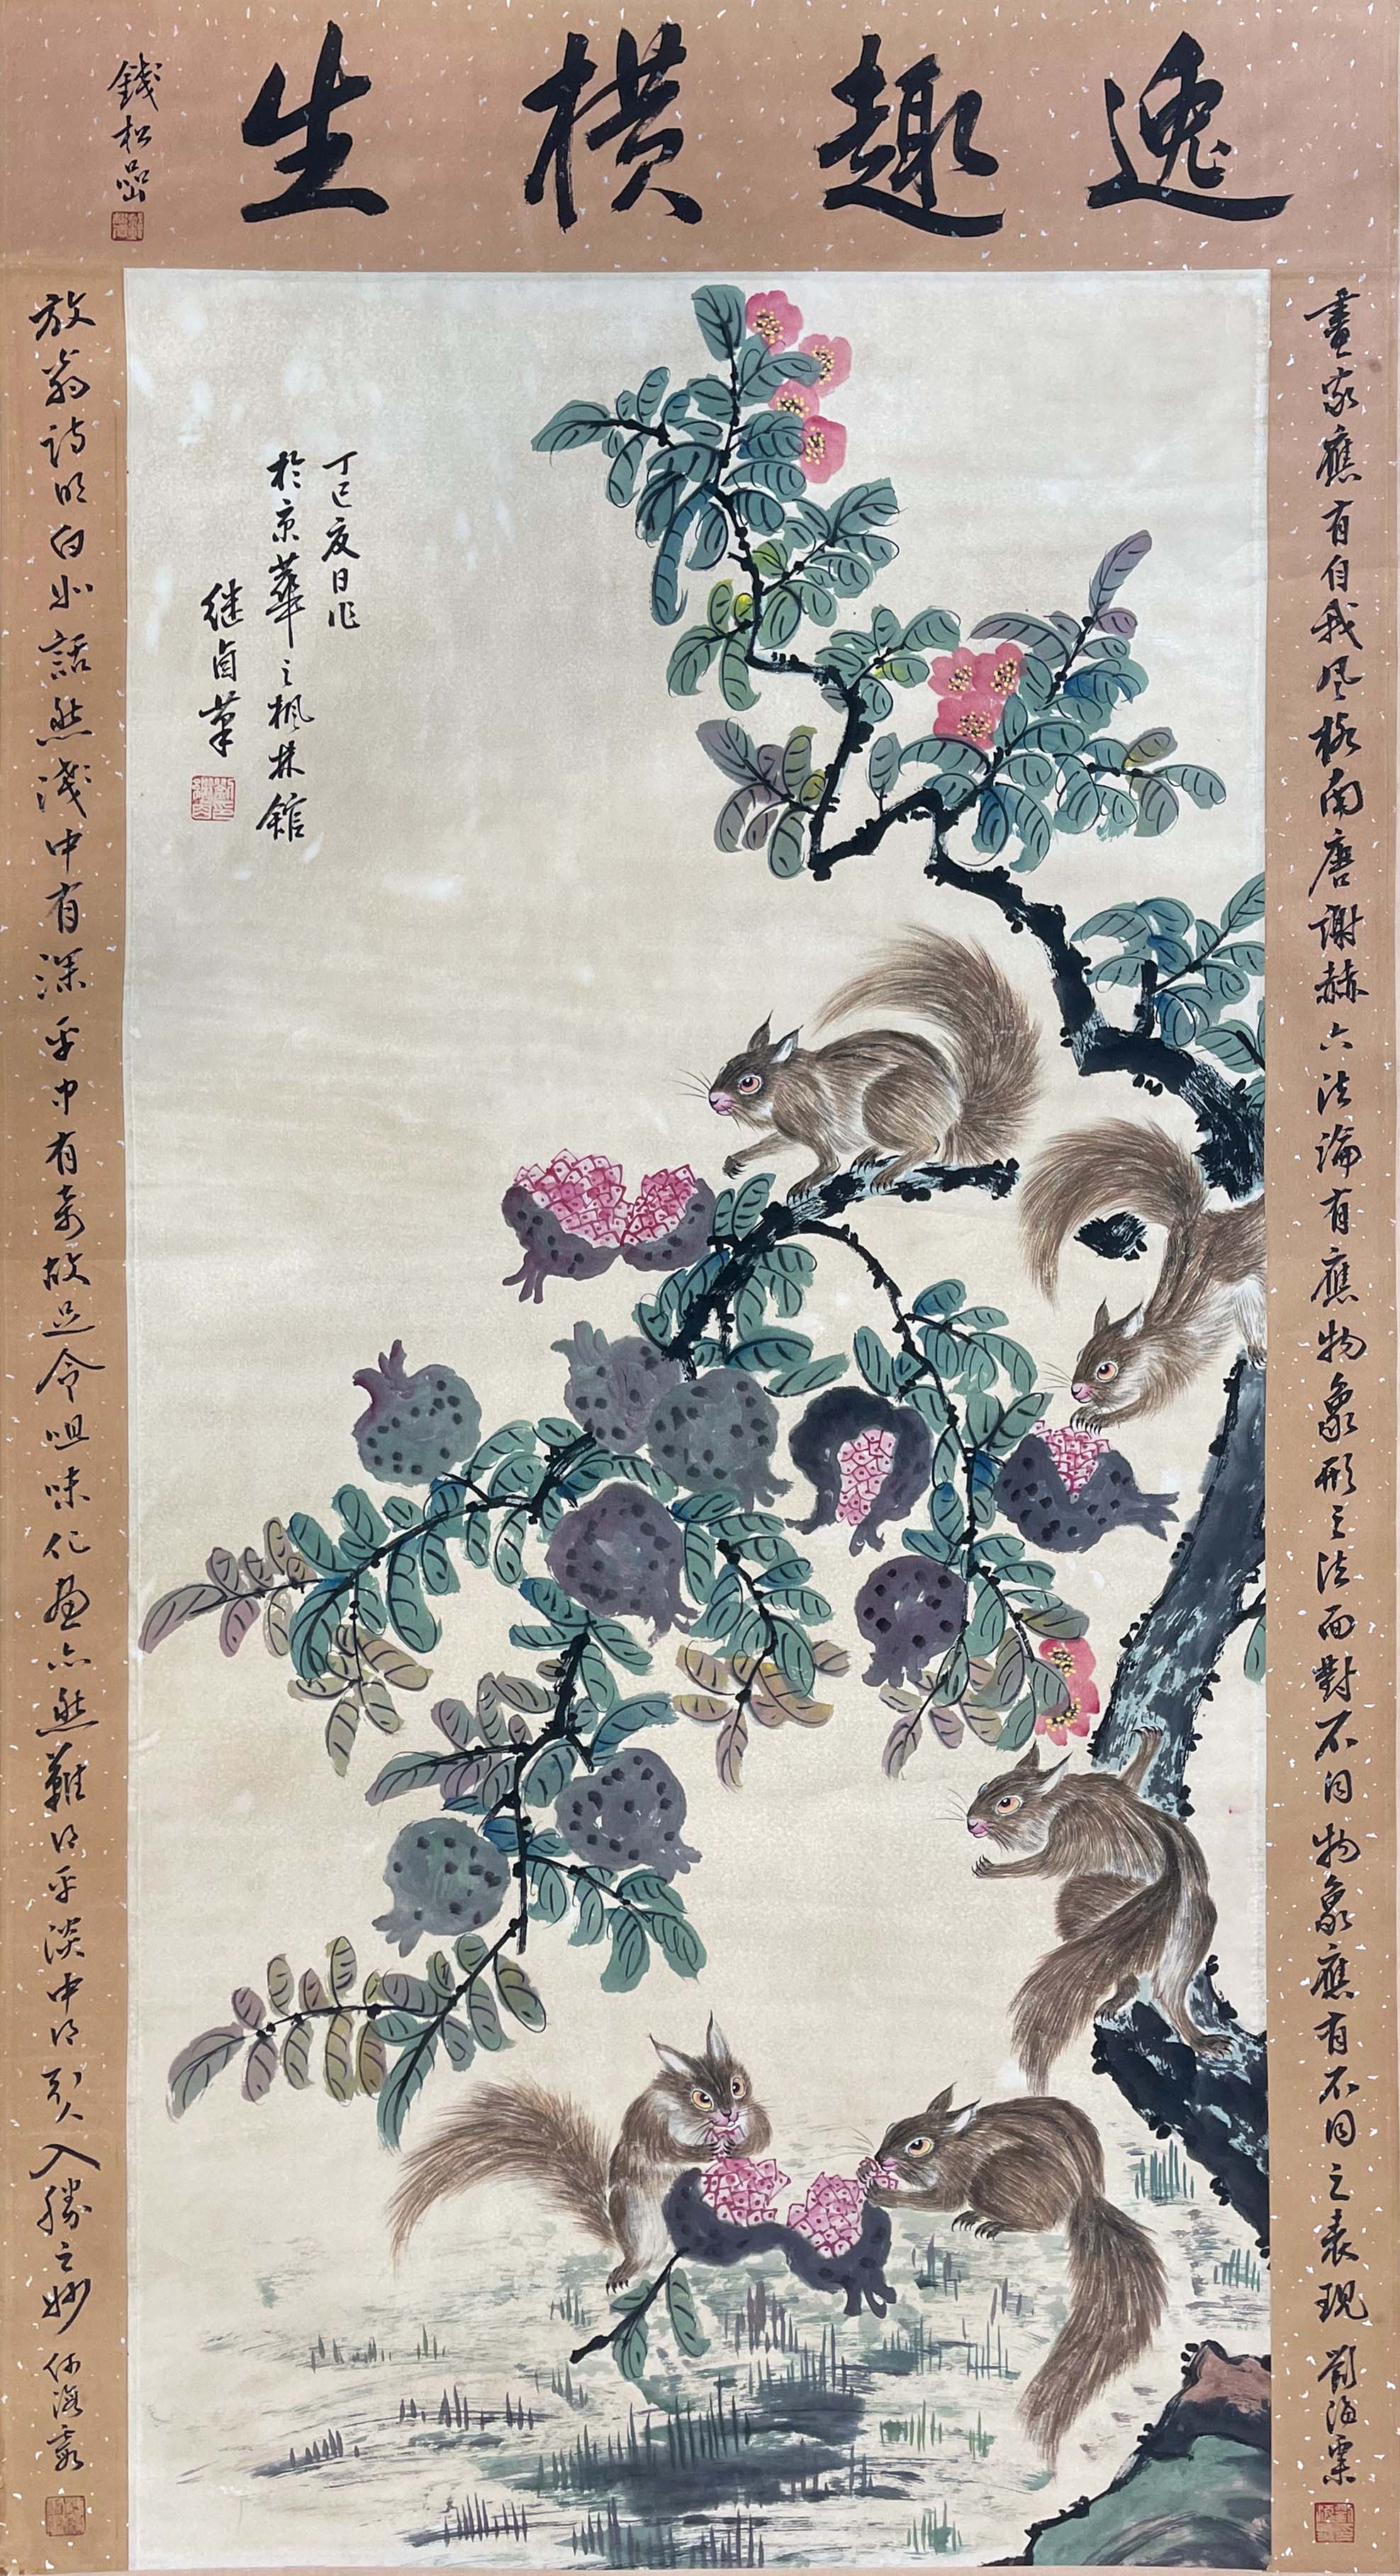 逸趣横生
錢松嵒
畫家應有自我风格南唐謝赫六法論有應物象形之法面對不同物象應有不同之表現 劉海粟
丁巳夏日作
於京華之枫林館
继卣筆
放翁詩明白如話然淺中有深平中有奇故足令咀味作画亦然難得平淡中得引人入勝之妙 何海霞